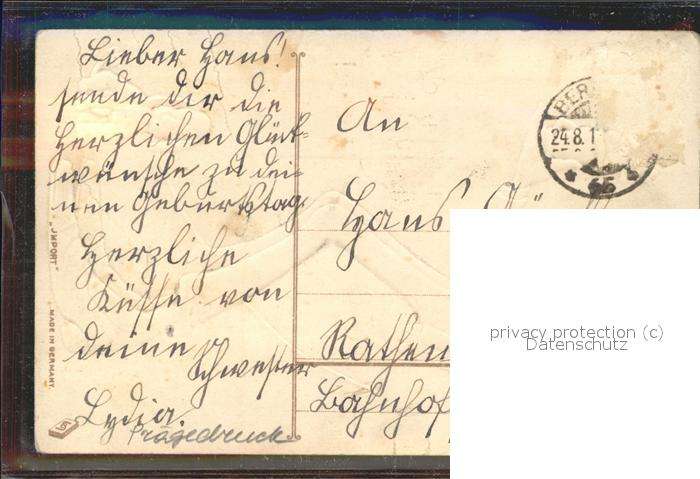 Lieber Hans!
sende dir die
herzlichen Glück-
wünsche zu dei-
nen Geburtstag.
Herzliche
Küsse von
deine Schwester
Lydia.
Prägedruck
"IMPORT"
MADE IN GERMANY
An
Hans
Rathen
Bahnhof
BER
24.8.1
65
privacy protection (c)
Datenschutz